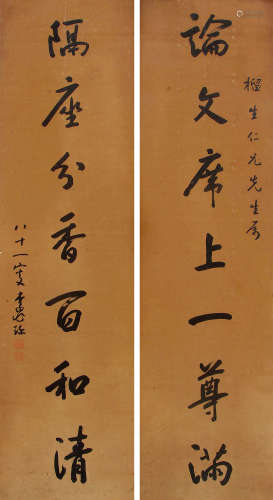 論文席上一尊滿
生仁兄先生
隔座分香百和清
八十一叟